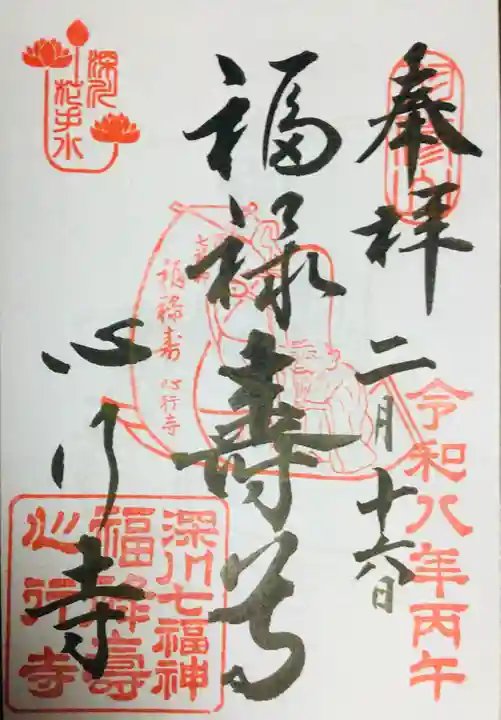 奉拝
二月十六日
令和八年丙午
福禄寿尊
福禄寿 心行寺
心行寺
深川七福神
福禄壽
心行寺